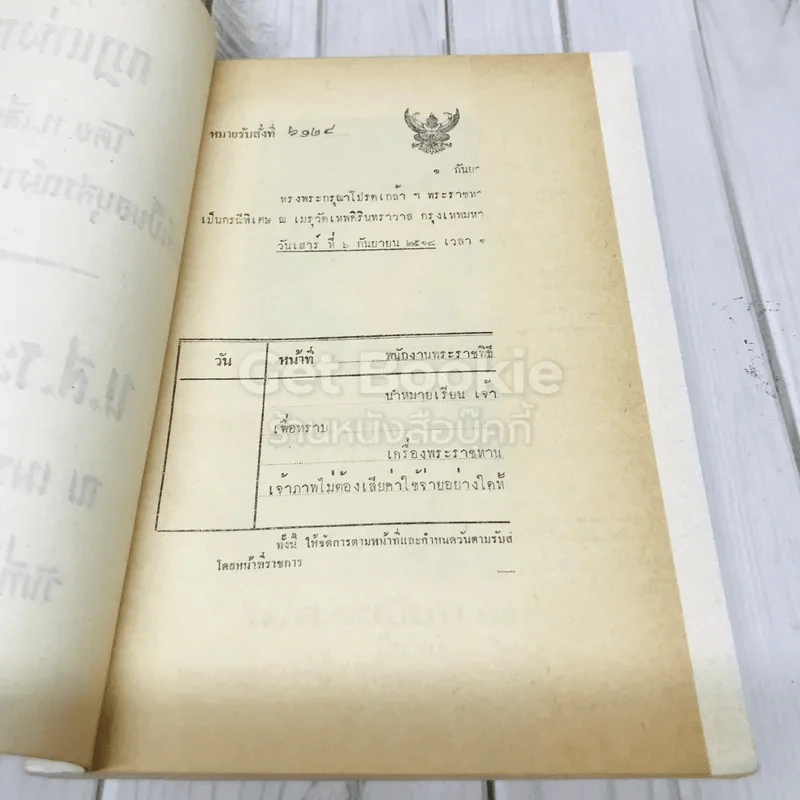 หมายรับสั่งที่ ๖๑๒๔
๑ กันยา
ทรงพระกรุณาโปรดเกล้า ฯ พระราชทา
เป็นกรณีพิเศษ ณ เมรุวัดเทพศิรินทราวาส กรุงเทพมหา
วันเสาร์ ที่ ๖ กันยายน ๒๕๑๘ เวลา ๑
วัน หน้าที่ พนักงานพระราชพิธี
นำหมายเรียน เจ้า
เพื่อทราบ
เครื่องพระราชทาน
เจ้าภาพไม่ต้องเสียค่าใช้จ่ายอย่างใดทั้
ทั้งนี้ ให้จัดการตามหน้าที่และกำหนดวันตามรับสั่
โดยหน้าที่ราชการ
Get Bookie
ร้านหนังสือบุ๊คกี้